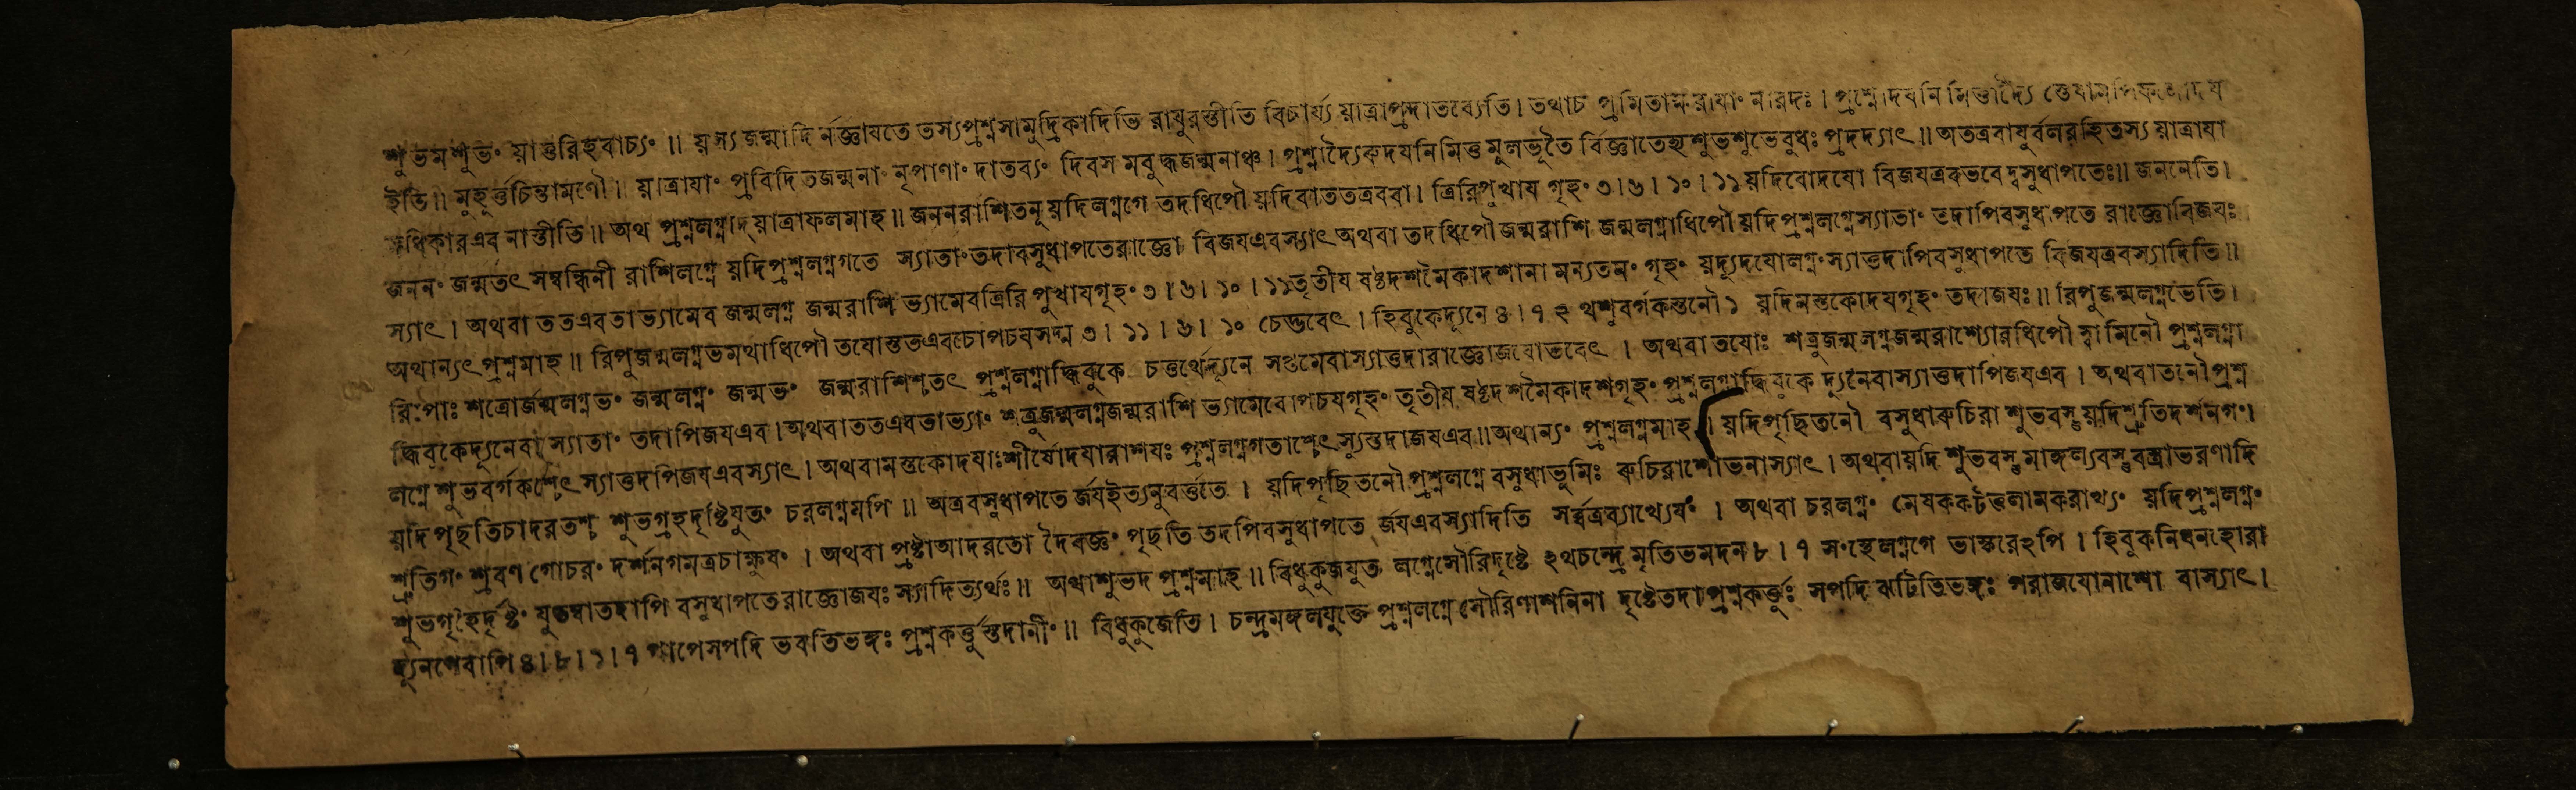 শুভমশুভং য়াত্তরিহবাচ্যং ॥ য়স্যজন্মাদি র্নজ্ঞাযতে তস্যপ্রশ্নসামুদ্রিকাদিভি রাযুরস্তীতি বিচার্য্য য়াত্রাপ্রদাতব্যেতি। তথাচ প্রমিতাক্ষরাযাং নারদঃ। প্রশ্নোদযনিমিত্তাদ্যৈ
ইতি॥ মুহূর্ত্তচিন্তামণৌ। য়াত্রাযাং প্রবিদিতজন্মনাং নৃপাণাং দাতব্যং দিবস মবুদ্ধজন্মনাঞ্চ। প্রশ্নাদ্যৈরুদযনিমিত্ত মূলভূতৈ র্বিজ্ঞাতেহ্যশুভশুভেবুধঃ প্রদদ্যাৎ॥ অতত্রবাযুর্বলরহিতস্য য়াত্রাযা
ধিকারএব নাস্তীতি॥ অথ প্রশ্নলগ্নাদ্ য়াত্রাফলমাহ॥ জননরাশিতনূ য়দিলগ্নগে তদধিপৌ য়দিবাততত্রববা। ত্রিরিপুখায গৃহং ৩।৬।১০।১১ য়দিবোদযো বিজযত্রবভবেদ্বসুধাপতেঃ॥ জননেতি।
জননং জন্মতৎ সম্বন্ধিনী রাশিলগ্নে য়দিপ্রশ্নলগ্নগতে স্যাতাংতদাবসুধাপতেরাজ্ঞো বিজযএবস্যাৎ অথবা তদধিপৌ জন্মরাশি জন্মলগ্নাধিপৌ য়দিপ্রশ্নলগ্নেস্যাতাং তদাপিবসুধাপতে রাজ্ঞোবিজযঃ
স্যাৎ। অথবা ততএবতাভ্যামেব জন্মলগ্ন জন্মরাশি ভ্যামেবত্রিরি পুখাযগৃহং ৩।৬।১০।১১তৃতীয ষষ্ঠদশমৈকাদশানা মন্যতমং গৃহং য়দ্যুদযোলগ্নংস্যাত্তদাপিবসুধাপতে বিজযত্রবস্যাদিতি॥
অথান্যৎ প্রশ্নমাহ॥ রিপুজন্মলগ্নভমথাধিপৌ তযোস্ততএবচোপচযসদ্ম ৩।১১।৬।১০ চেদ্ভবেৎ। হিবুকেদ্যূনে ৪।৭ ঽ থশুবর্গকস্তনৌ ১ য়দিমস্তকোদযগৃহং তদাজযঃ॥ রিপুজন্মলগ্নভেতি।
রিপোঃ শত্রোর্জন্মলগ্নভং জন্মলগ্নং জন্মভং জন্মরাশিশ্চতৎ প্রশ্নলগ্নাদ্ধিবুকে চত্তর্থেদ্যূনে সপ্তমেবাস্যাত্তদারাজ্ঞোজযোভবেৎ। অথবা তযোঃ শত্রুজন্মলগ্নজন্মরাশ্যোরধিপৌ স্বামিনৌ প্রশ্নলগ্না
দ্ধিবুকেদ্যূনেবা স্যাতাং তদাপিজযএব। অথবাততএবতাভ্যাং শত্রুজন্মলগ্নজন্মরাশি ভ্যামেবোপচযগৃহং তৃতীয ষষ্ঠদশমৈকাদশগৃহং প্রশ্নলগ্নাদ্ধিবুকে দ্যূনেবাস্যাত্তদাপিজযএব। অথবাতনৌপ্রশ্ন
লগ্নে শুভবর্গকশ্চেৎ স্যাত্তদপিজযএবস্যাৎ। অথবামস্তকোদযাঃশীর্ষোদযারাশযঃ প্রশ্নলগ্নগতাশ্চেৎ স্যুস্তদাজযএব॥ অথান্যং প্রশ্নলগ্নমাহ। য়দিপৃছিতনৌ বসুধাৰুচিরা শুভবস্তুয়দিশ্রুতিদর্শনগং।
য়দি পৃছতিচাদরতশ্চ শুভগ্রহদৃষ্টিযুতং চরলগ্নমপি॥ অত্রবসুধাপতে র্জযইত্যনুবর্ত্ততে। য়দিপৃছিতনৌপ্রশ্নলগ্নে বসুধাভূমিঃ ৰুচিরাশোভনাস্যাৎ। অথবায়দি শুভবস্তুমাঙ্গল্যবস্তুবস্ত্রাভরণাদি
শ্রুতিগং শ্রবণ গোচরং দর্শনগমত্রচাক্ষুষং। অথবা প্রষ্টাআদরতো দৈবজ্ঞং পৃছতি তদপিবসুধাপতে র্জযএবস্যাদিতি সর্ব্বত্রব্যাখ্যেযং। অথবা চরলগ্নং মেষকর্কটত্তলামকরাখ্যং য়দিপ্রশ্নলগ্নং
শুভগৃহৈর্দৃষ্টং যুতম্বাতদাপি বসুধাপতেরাজ্ঞোজযঃ স্যাদিত্যর্থঃ॥ অথাশুভদ প্রশ্নমাহ॥ বিধুকুজযুত লগ্নেসৌরিদৃষ্টে ঽথচন্দ্রে মৃতিভমদন ৮।৭ সংস্থেলগ্নগে ভাস্করেঽপি। হিবুকনিধনহোরা
দ্যূনগেবাপি ৪।৮।১।৭ পাপেসপদি ভবতিভঙ্গঃ প্রশ্নকর্ত্তুস্তদানীং॥ বিধুকুজেতি। চন্দ্রমঙ্গলযুক্তে প্রশ্নলগ্নে সৌরিণাশনিনা দৃষ্টেতদাপ্রশ্নকর্ত্তুঃ সপদি ঝটিতিভঙ্গঃ পরাজযোনাশো বাস্যাৎ।